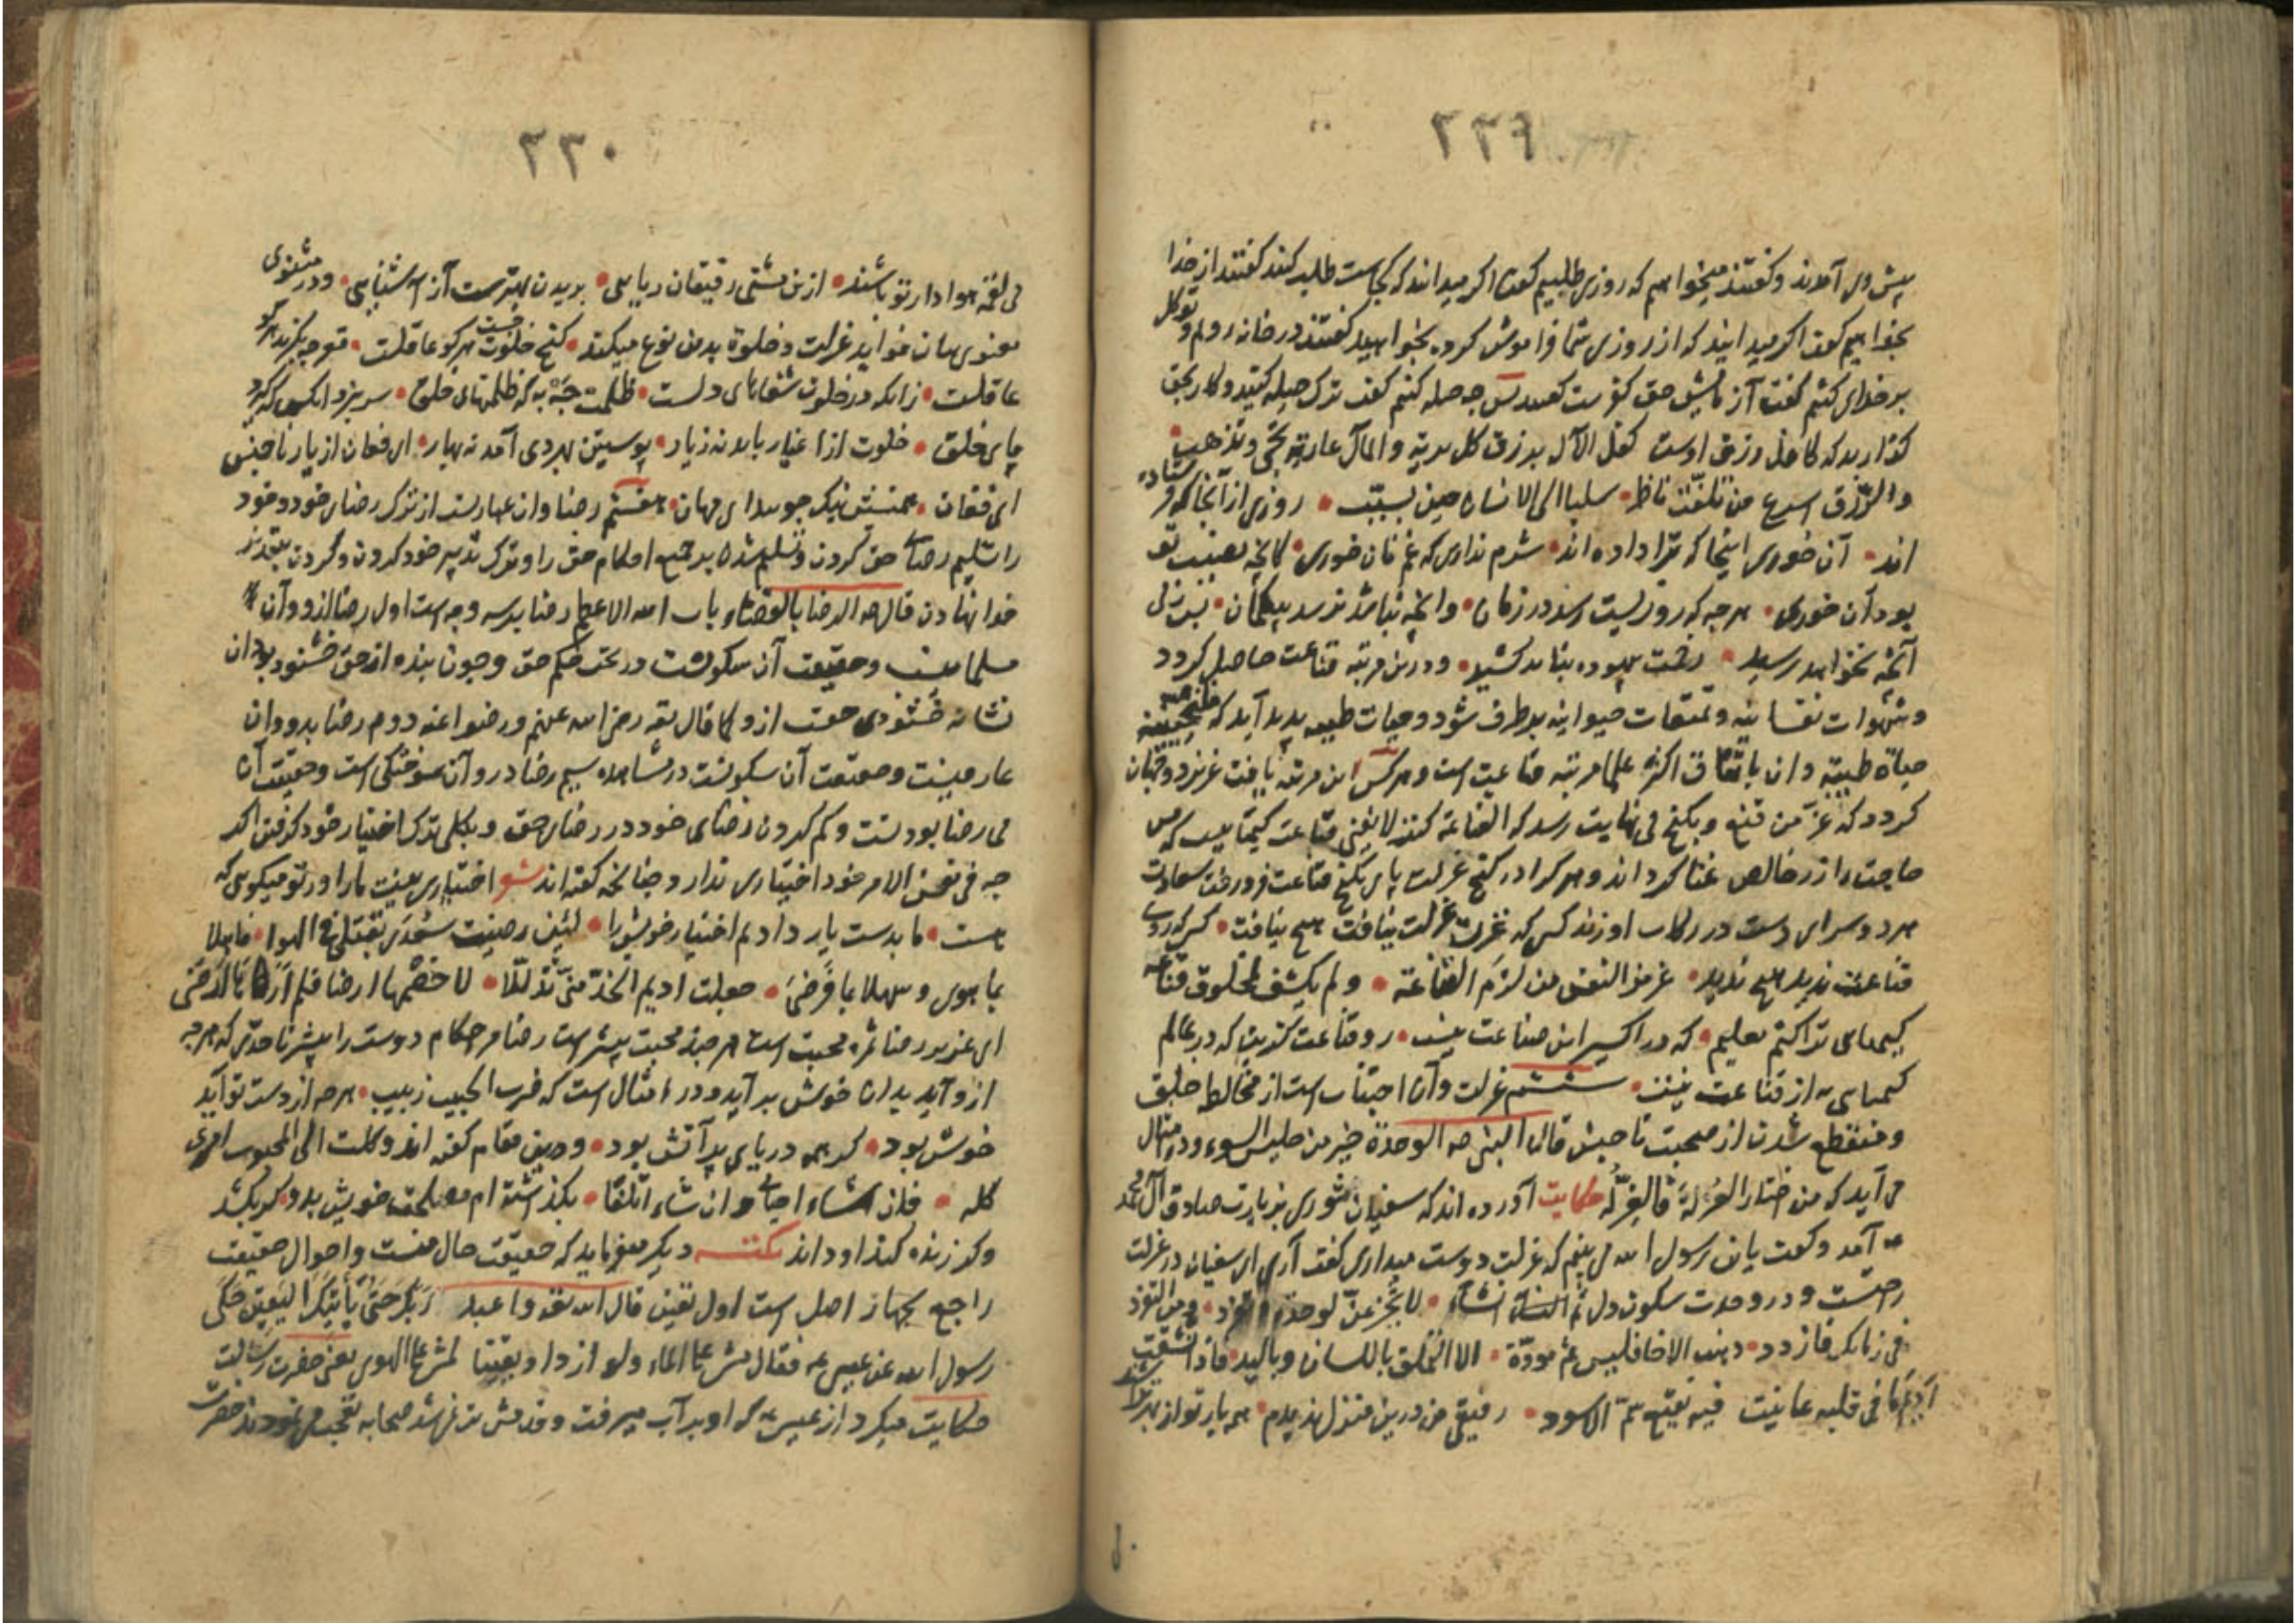 ٢٢٩
پیش وی آمدند و کفتند میخواهیم که روزی طلبیم کفت اکر میدانند که کجاست طلب کنند کفتند از خدا
بخواهیم کفت اکر میدانید که از روزی شما فراموش کرده بخواهید کفتند در خانه رویم و توکل
بر خدای کنیم کفت آزمایش حق کفرست کفتند پس چه حیله کنیم کفت ترک حیله کنید و کار بحق
کذارید که کافل رزق اوست برزق کل بریة والمال عاریة تجی وتذهب
والرزق اسرع من تلفت ناظر سببا الی الانسان حین یسبب روزی از آنجا که فرستاده
اند آن خوری اینجا که ترا داده اند شرم نداری که غم نان خوری نصیب تو
بود آن خوری هرچه که روزیست رسد در زمان وانچه نباشد نرسد بیکمان
آنچه نخواهد رسید بیهوده نباید کشید ودرین مرتبه قناعت حاصل کردد
وشهوات نفسانیه وتمتعات حیوانیه برطرف شود وحیات طیبه پدید آید که فلنحیینه
حیاة طیبة وان باتفاق اکثر علما مرتبه قناعت است وهرکس این مرتبه یافت عزیز دو جهان
کردد که عز من قنع وبکنج بی نهایت رسد که القناعة کنز لا یفنی قناعت کیمیاییست که مس
حاجت را زر خالص غنا کرداند وهر کرا در کنج عزلت پای بکنج قناعت فرو رفت سعادت
هر دو سرای دست در رکاب او زند کسی که عزت عزلت نیافت هیچ نیافت کسی که روی
قناعت ندید هیچ ندید عزیز النفس من لزم القناعة ولم یکشف لمخلوق قناعه
کیمیای ترا کنم تعلیم که در اکسیر این صناعت نیست رو قناعت کزین که در عالم
کیمیایی به از قناعت نیست ششم عزلت وآن اجتناب است از مخالطه خلق
ومنقطع شدن از صحبت ناجنس قال النبی صه الوحدة خیر من جلیس السوء ودر مثال
می آید که من اختار العزلة فالعز له حکایت آورده اند که سفیان ثوری بزیارت صادق آل محمد
عه آمد وکفت یابن رسول الله می بینم که عزلت دوست میداری کفت آری ای سفیان در عزلت
راحتست ودر وحدت سکون دل لا تجزعن لوحدة وتفرد ومن التفرد
فی زمانک فازدد ذهب الاخا فلیس ثم مودة الا التملق باللسان وبالید فاذا کشفت
فی قلبه عاینت فیه نقیع سم الاسود رفیقی من درین منزل ندیدم
٢٣٠
بی لقمه هوادار تو باشند ازین مشتی رفیقان ریایی بریدن بهترست از آشنایی ودر مثنوی
معنوی بیان فواید عزلت وخلوة بدین نوع میکند کنج خلوت هر کو عاقلست
عاقلست زانکه در خلوت صفاهای دلست ظلمت چه به که ظلمتهای خلق سر نبرد آنکس که کیرد
پای خلق خلوت از اغیار باید نه زیار پوستین بهر دی آمد نه بهار ای فغان از یار ناجنس
ای فغان همنشین نیک جویید ای مهان هفتم رضا وان عبارتست از ترک رضای خود وخود
را تسلیم رضای حق کردن وتسلیم شدن بر جمیع احکام حق را وترک تدبیر خود کردن وکردن بتقدیر
خدا نهادن قال صه الرضا بالقضاء باب الله الاعظم رضا بر سه وجه است اول رضا ازو وآن
وحقیقت آن سکونست در تحت حکم حق وچون بنده از حق خشنود بود آن
نشانه خشنودی حقست ازو کما قال تعه رضی الله عنهم ورضوا عنه دوم رضا بدو وان
وحقیقت آن سکونست در مشاهده سیم رضا درو آن سوختکی است وحقیقت آن
بی رضا بودنست وکم کردن رضای خود در رضای حق وبکلی ترک اختیار خود کرفتن اکر
چه فی نفس الامر خود اختیاری ندارد چنانچه کفته اند شعر اختیاری نیست مارا ور تو میکویی که
هست ما بدست یار دادیم اختیار خویش را لئن رضیت سعدی بقتلی فی الهوا فاهلا
بما تهوی وسهلا بما ترضی جعلت ادیم الخد منی تذللا
ای عزیز رضا ثمره محبت است هر چند محبت بیشتر است رضا در احکام دوست را بیشتر تا حدی که هر چه
ازو آید بدان خوش برآید ودر امثال است که ضرب الحبیب زبیب هر چه از دست تو آید
خوش بود کر همه دریای پر آتش بود ودرین مقام کفته اند وکلت الی المحبوب امری
کله فان شاء احیانی وان شاء اتلفا بکذاشته ام مصلحت خویش بدو کر بکشد
وکر زنده کند او داند نکته دیکر میفرماید که حقیقت حال منست واحوال حقیقت
راجع بچهار اصل است اول یقین قال الله تعه واعبد ربک حتی یأتیک الیقین حکی
رسول الله عن عیسی عه فقال مشی علی الماء ولو ازداد یقینا لمشی علی الهوی یعنی حضرت رسالت
حکایت میکرد از عیسی عه که او بر آب میرفت وقدمش تر نمی شد صحابه تعجب می نمودند حضرت